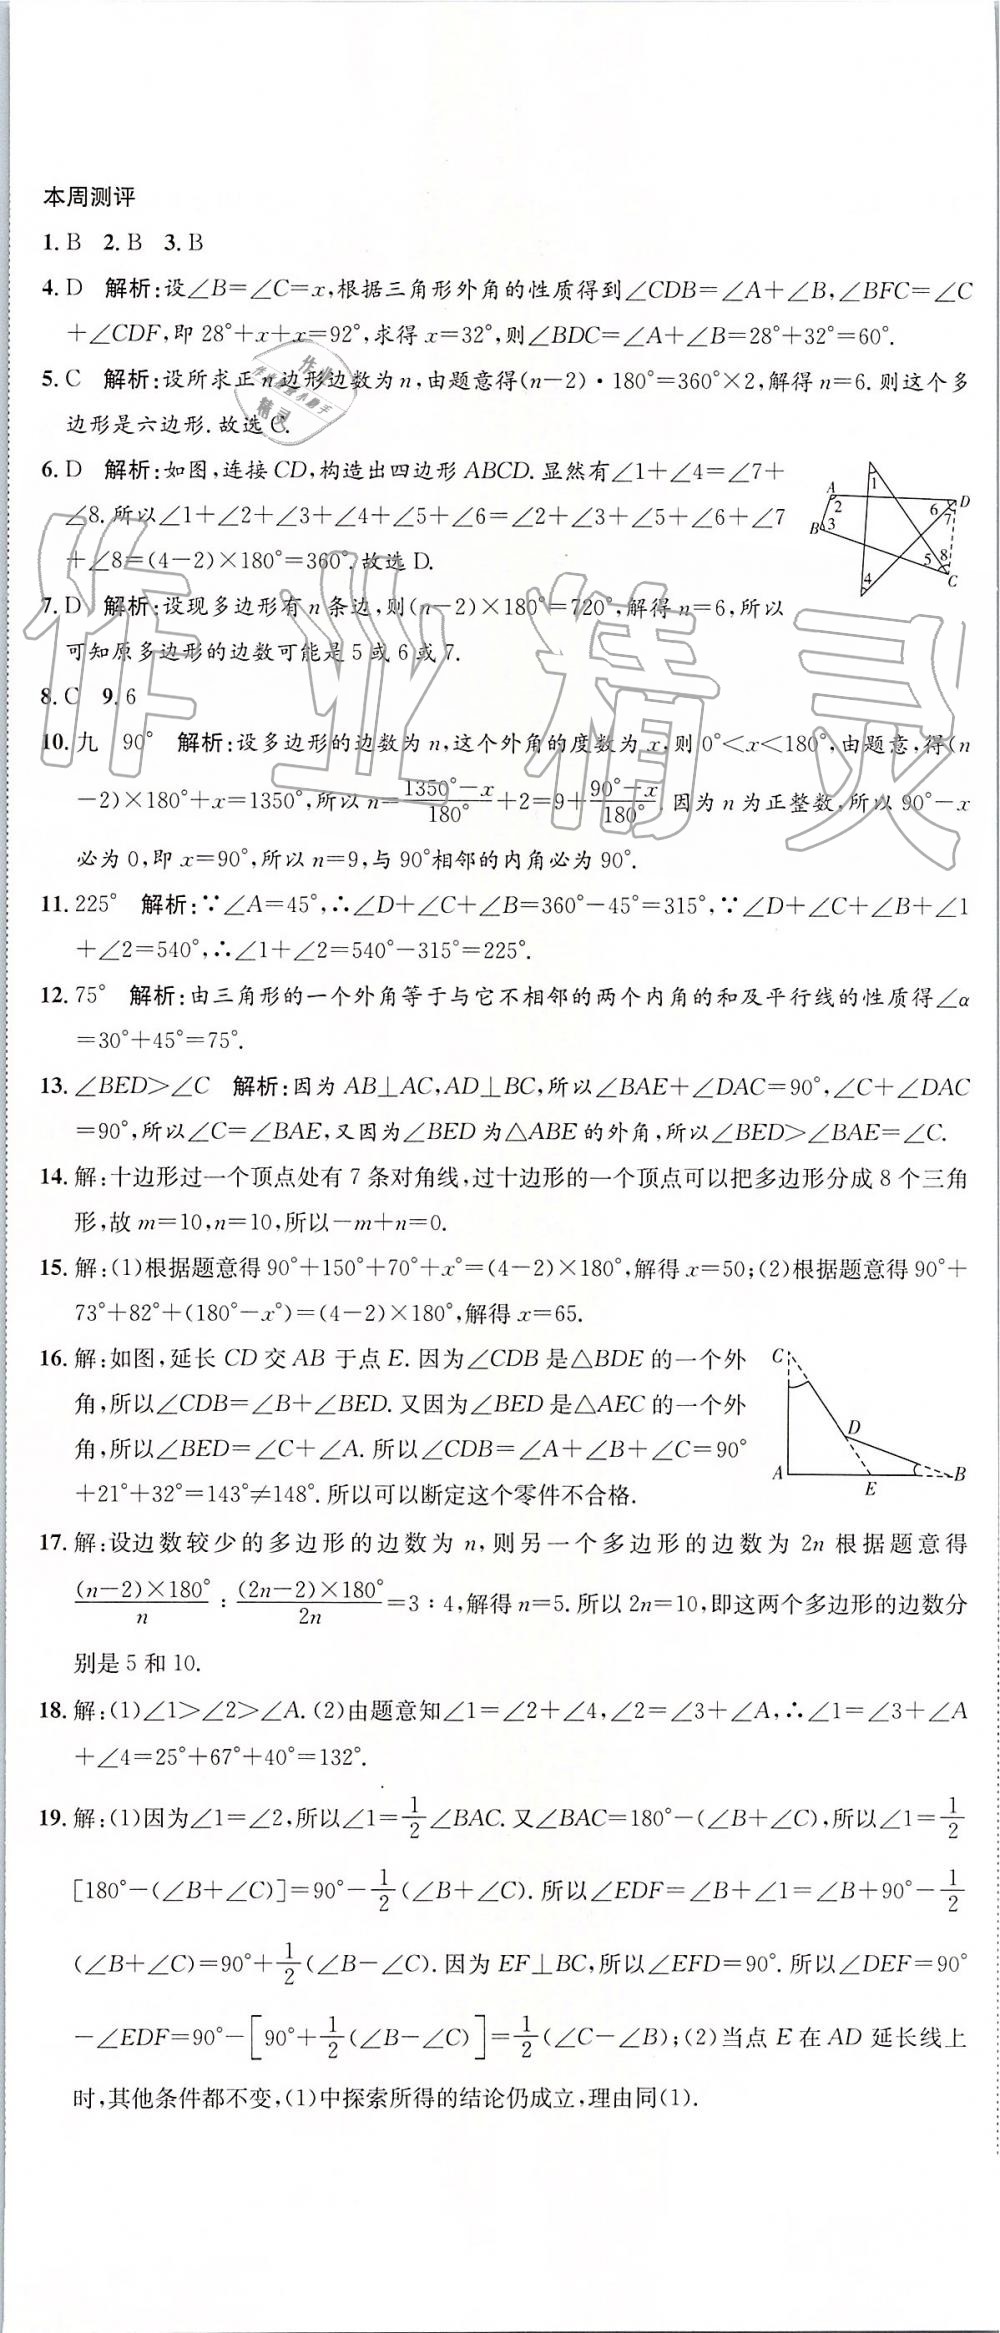 本周测评
1. B 2. B 3. B
4. D 解析:设∠B=∠C=x,根据三角形外角的性质得到∠CDB=∠A+∠B,∠BFC=∠C
+∠CDF,即 28°+x+x=92°,求得 x=32°,则∠BDC=∠A+∠B=28°+32°=60°.
5. C 解析:设所求正n边形边数为n,由题意得(n-2)·180°=360°×2,解得n=6.则这个多
边形是六边形.故选C.
6. D 解析:如图,连接CD,构造出四边形ABCD.显然有∠1+∠4=∠7+
∠8.所以∠1+∠2+∠3+∠4+∠5+∠6=∠2+∠3+∠5+∠6+∠7
+∠8=(4-2)×180°=360°.故选D.
A 2 B 3 1 6 7 D 4 5 8 C
7. D 解析:设现多边形有n条边,则(n-2)×180°=720°,解得n=6,所以
可知原多边形的边数可能是5或6或7.
8. C 9. 6
10. 九 90° 解析:设多边形的边数为n,这个外角的度数为x,则0°<x<180°,由题意,得(n
-2)×180°+x=1350°,所以n=(1350°-x)/180°+2=9+(90°-x)/180°.因为n为正整数,所以90°-x
必为0,即x=90°,所以n=9,与90°相邻的内角必为90°.
11. 225° 解析:∵∠A=45°,∴∠D+∠C+∠B=360°-45°=315°,∵∠D+∠C+∠B+∠1
+∠2=540°,∴∠1+∠2=540°-315°=225°.
12. 75° 解析:由三角形的一个外角等于与它不相邻的两个内角的和及平行线的性质得∠α
=30°+45°=75°.
13. ∠BED>∠C 解析:因为AB⊥AC,AD⊥BC,所以∠BAE+∠DAC=90°,∠C+∠DAC
=90°,所以∠C=∠BAE,又因为∠BED为△ABE的外角,所以∠BED>∠BAE=∠C.
14. 解:十边形过一个顶点处有7条对角线,过十边形的一个顶点可以把多边形分成8个三角
形,故m=10,n=10,所以-m+n=0.
15. 解:(1)根据题意得90°+150°+70°+x°=(4-2)×180°,解得x=50;(2)根据题意得90°+
73°+82°+(180°-x°)=(4-2)×180°,解得x=65.
16. 解:如图,延长CD交AB于点E.因为∠CDB是△BDE的一个外
角,所以∠CDB=∠B+∠BED.又因为∠BED是△AEC的一个外
角,所以∠BED=∠C+∠A.所以∠CDB=∠A+∠B+∠C=90°
+21°+32°=143°≠148°.所以可以断定这个零件不合格.
C D A E B
17. 解:设边数较少的多边形的边数为n,则另一个多边形的边数为2n根据题意得
(n-2)×180°/n:(2n-2)×180°/2n=3:4,解得n=5.所以2n=10,即这两个多边形的边数分
别是5和10.
18. 解:(1)∠1>∠2>∠A.(2)由题意知∠1=∠2+∠4,∠2=∠3+∠A,∴∠1=∠3+∠A
+∠4=25°+67°+40°=132°.
19. 解:(1)因为∠1=∠2,所以∠1=1/2∠BAC.又∠BAC=180°-(∠B+∠C),所以∠1=1/2
[180°-(∠B+∠C)]=90°-1/2(∠B+∠C).所以∠EDF=∠B+∠1=∠B+90°-1/2
(∠B+∠C)=90°+1/2(∠B-∠C).因为EF⊥BC,所以∠EFD=90°.所以∠DEF=90°
-∠EDF=90°-[90°+1/2(∠B-∠C)]=1/2(∠C-∠B);(2)当点E在AD延长线上
时,其他条件都不变,(1)中探索所得的结论仍成立,理由同(1).
作业精灵